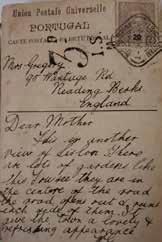 Union Postale Universelle
PORTUGAL
CARTE POSTALE
5
Mrs
90 Wantage Rd
Reading Berks.
England
Dear Mother
This is another
view of Lisbon There
are lots of gardens like
this you see they are in
the centre of the road
the road opens out & runs
each side of them. It
give the town a lovely &
refreshing appearance